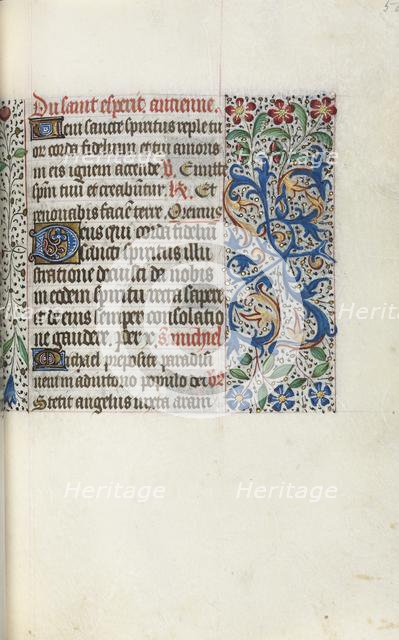 Du saint esperit antienne.
Veni sancte spiritus reple tu
or corda fidelium et tui amoris
in eis ignem accende. V. Emitte
spm tuū et creabūtur. R. Et
renouabis faciē terre. Oremus
Deus qui corda fideliū
sancti spiritus illu
stratione docuisti da nobis
in eodem spiritu recta sapere
et de eius semper consolatio
ne gaudere. per x. S. michiel
Michael preposite paradisi
veni in adiutorio populo dei
Stetit angelus iuxta aram
Heritage Heritage Heritage
Heritage Heritage Heritage